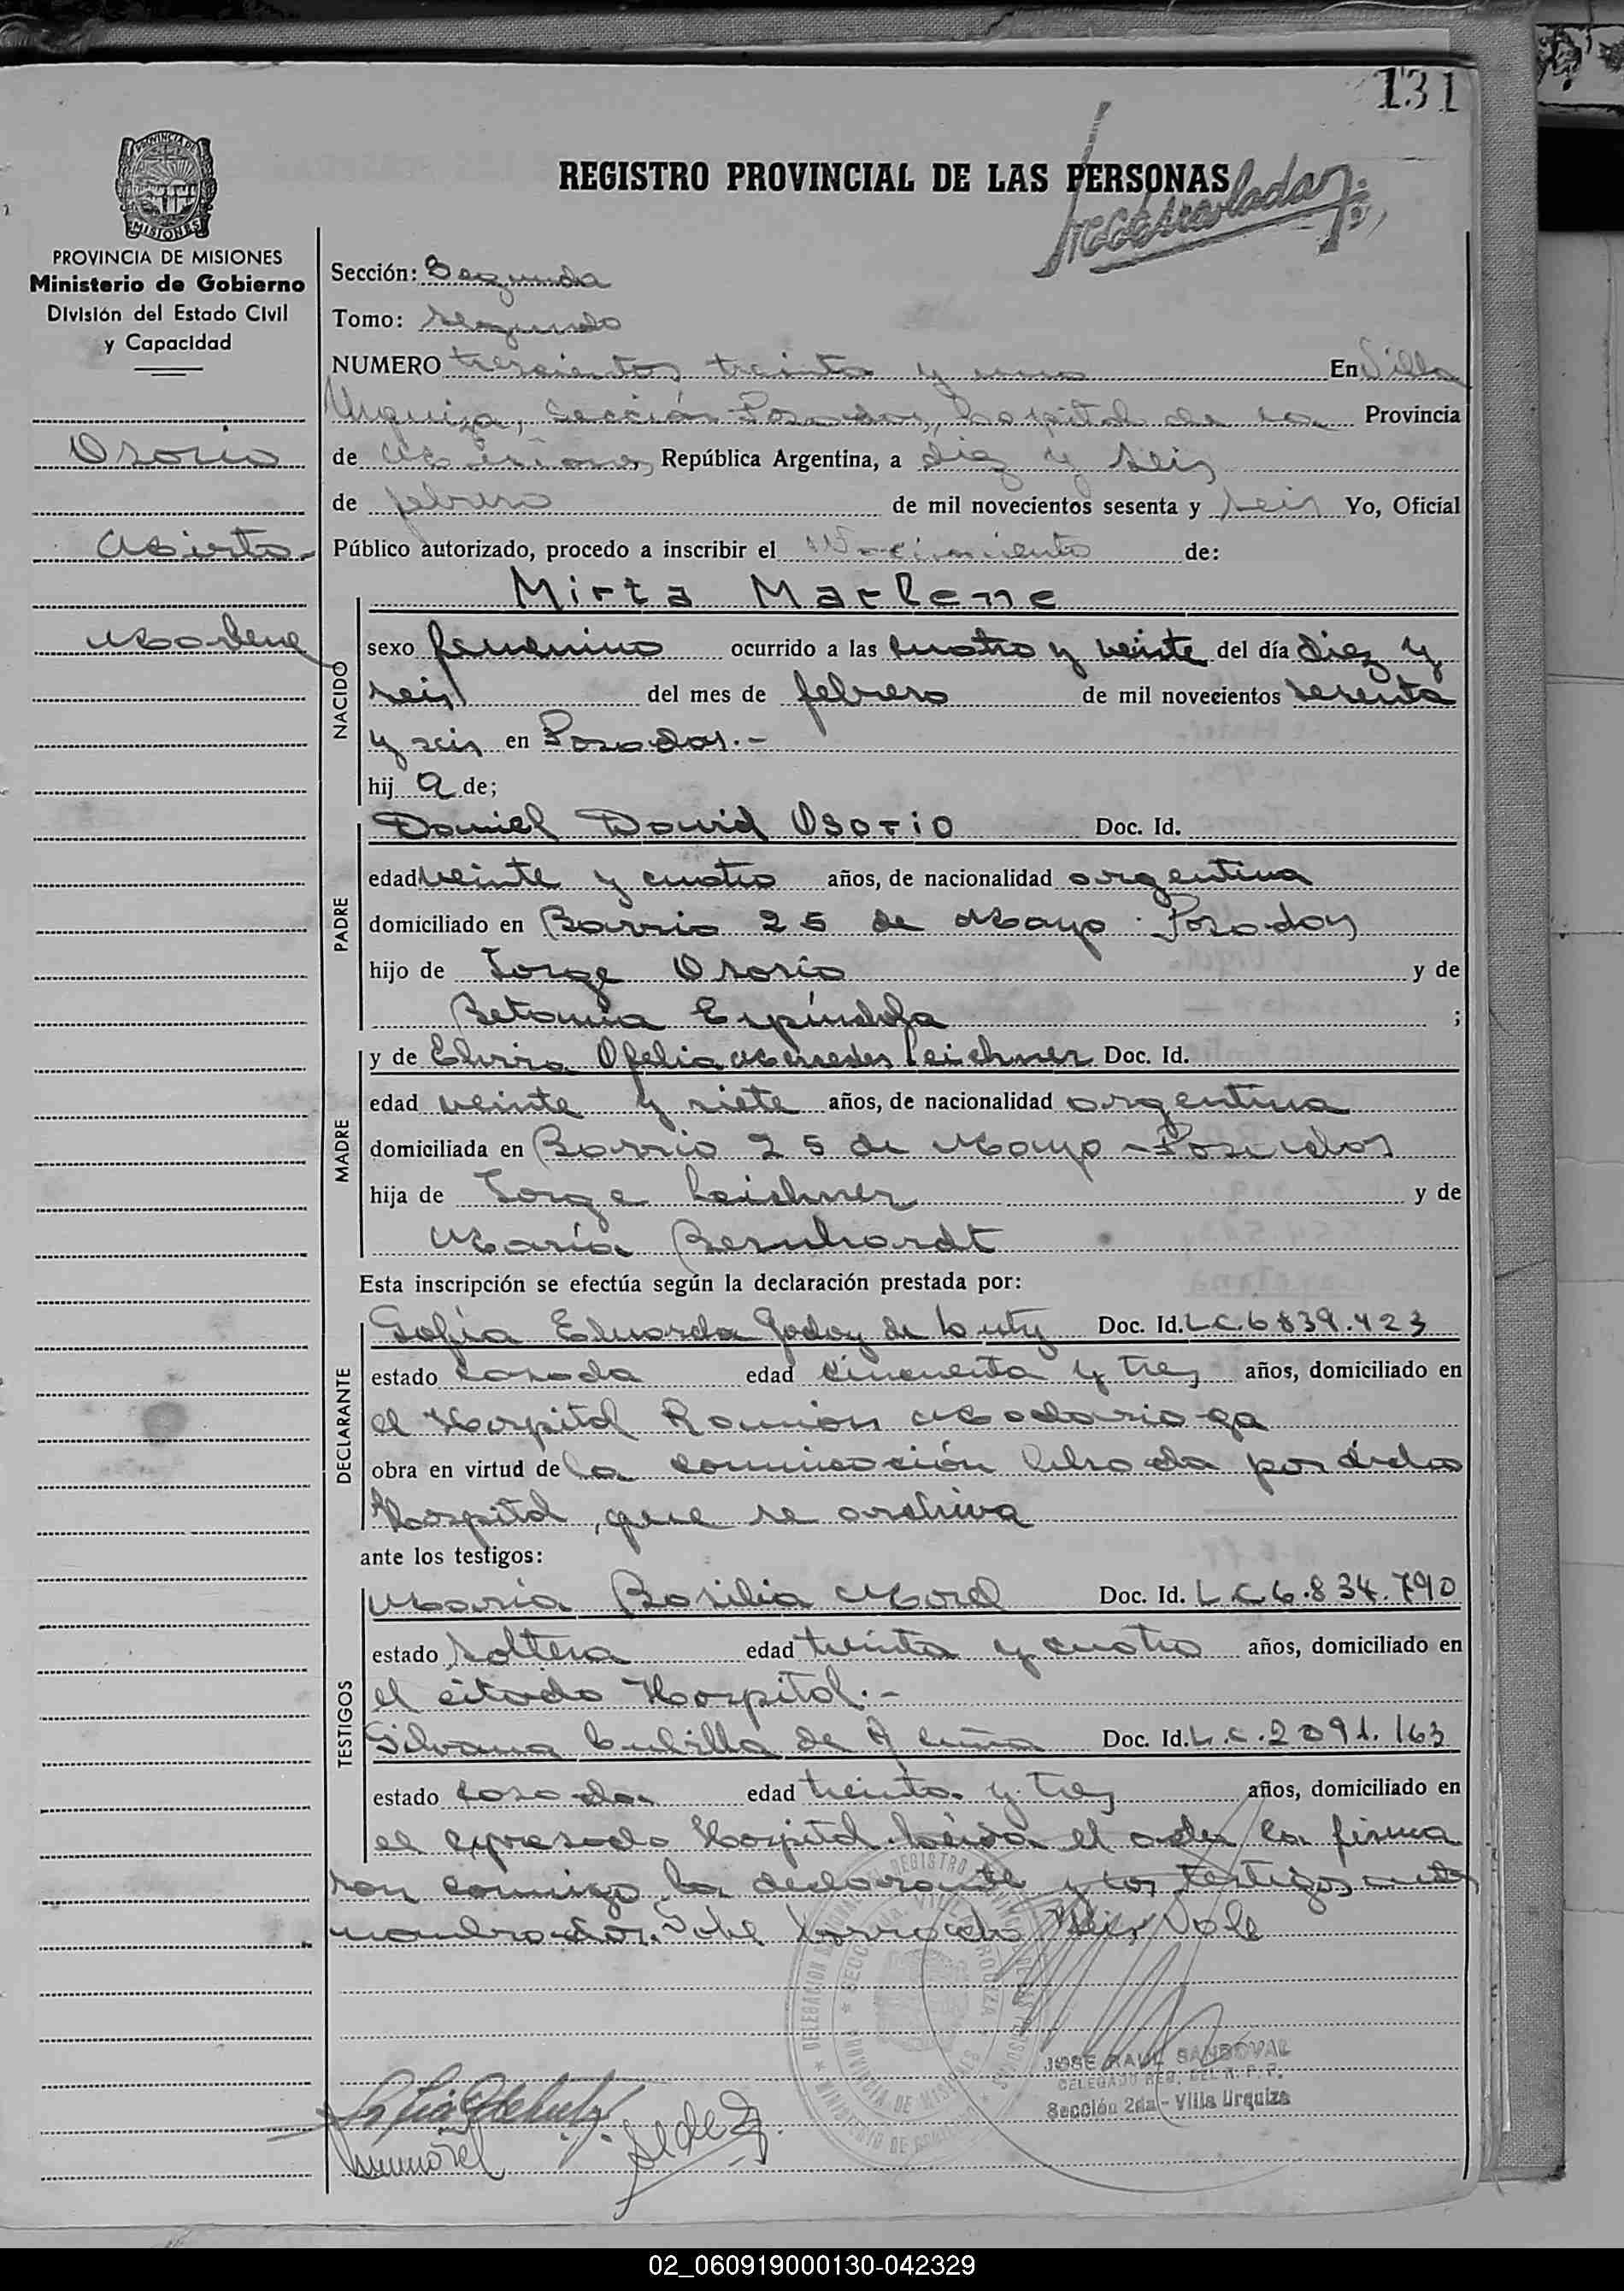 131
REGISTRO PROVINCIAL DE LAS PERSONAS
PROVINCIA DE MISIONES
PROVINCIA DE MISIONES
Ministerio de Gobierno
División del Estado Civil
y Capacidad
Osorio
Marlene
Sección: Segunda
Tomo: Segundo
NUMERO trescientos treinta y uno En Villa
Urquiza, Sección Posadas, Capital de la Provincia
de Misiones República Argentina, a diez y seis
de febrero de mil novecientos sesenta y seis Yo, Oficial
Público autorizado, procedo a inscribir el Nacimiento de:
Mirta Marlene
NACIDO
sexo femenino ocurrido a las cuatro y veinte del día diez y
seis del mes de febrero de mil novecientos sesenta
y seis en Posadas.-
hij a de;
PADRE
Daniel David Osorio Doc. Id.
edad veinte y cuatro años, de nacionalidad argentina
domiciliado en Barrio 25 de Mayo Posadas
hijo de Jorge Osorio y de
Betania Espíndola ;
MADRE
y de Elvira Ofelia Mercedes Leichner Doc. Id.
edad veinte y siete años, de nacionalidad argentina
domiciliada en Barrio 25 de Mayo - Posadas
hija de Jorge Leichner y de
María Bernhardt
Esta inscripción se efectúa según la declaración prestada por:
DECLARANTE
Sofía Eduarda Godoy de Doc. Id. L.C. 6839.423
estado casada edad cincuenta y tres años, domiciliado en
el Hospital Ramón Madariaga
obra en virtud de la comunicación librada por dicho
Hospital, que se archiva
ante los testigos:
TESTIGOS
María Basilia Morel Doc. Id. L.C 6.834.790
estado soltera edad treinta y cuatro años, domiciliado en
el citado Hospital.-
Silvana Cubilla de Acuña Doc. Id. L.C. 2091.163
estado casada edad treinta y tres años, domiciliado en
el expresado Hospital. Leída el acta la firma
ron conmigo la declarante y los testigos
nombrados. Vale
JOSE RAUL SANDOVAL
DELEGADO REG. DEL R. P. P.
Sección 2da - Villa Urquiza
02_060919000130-042329